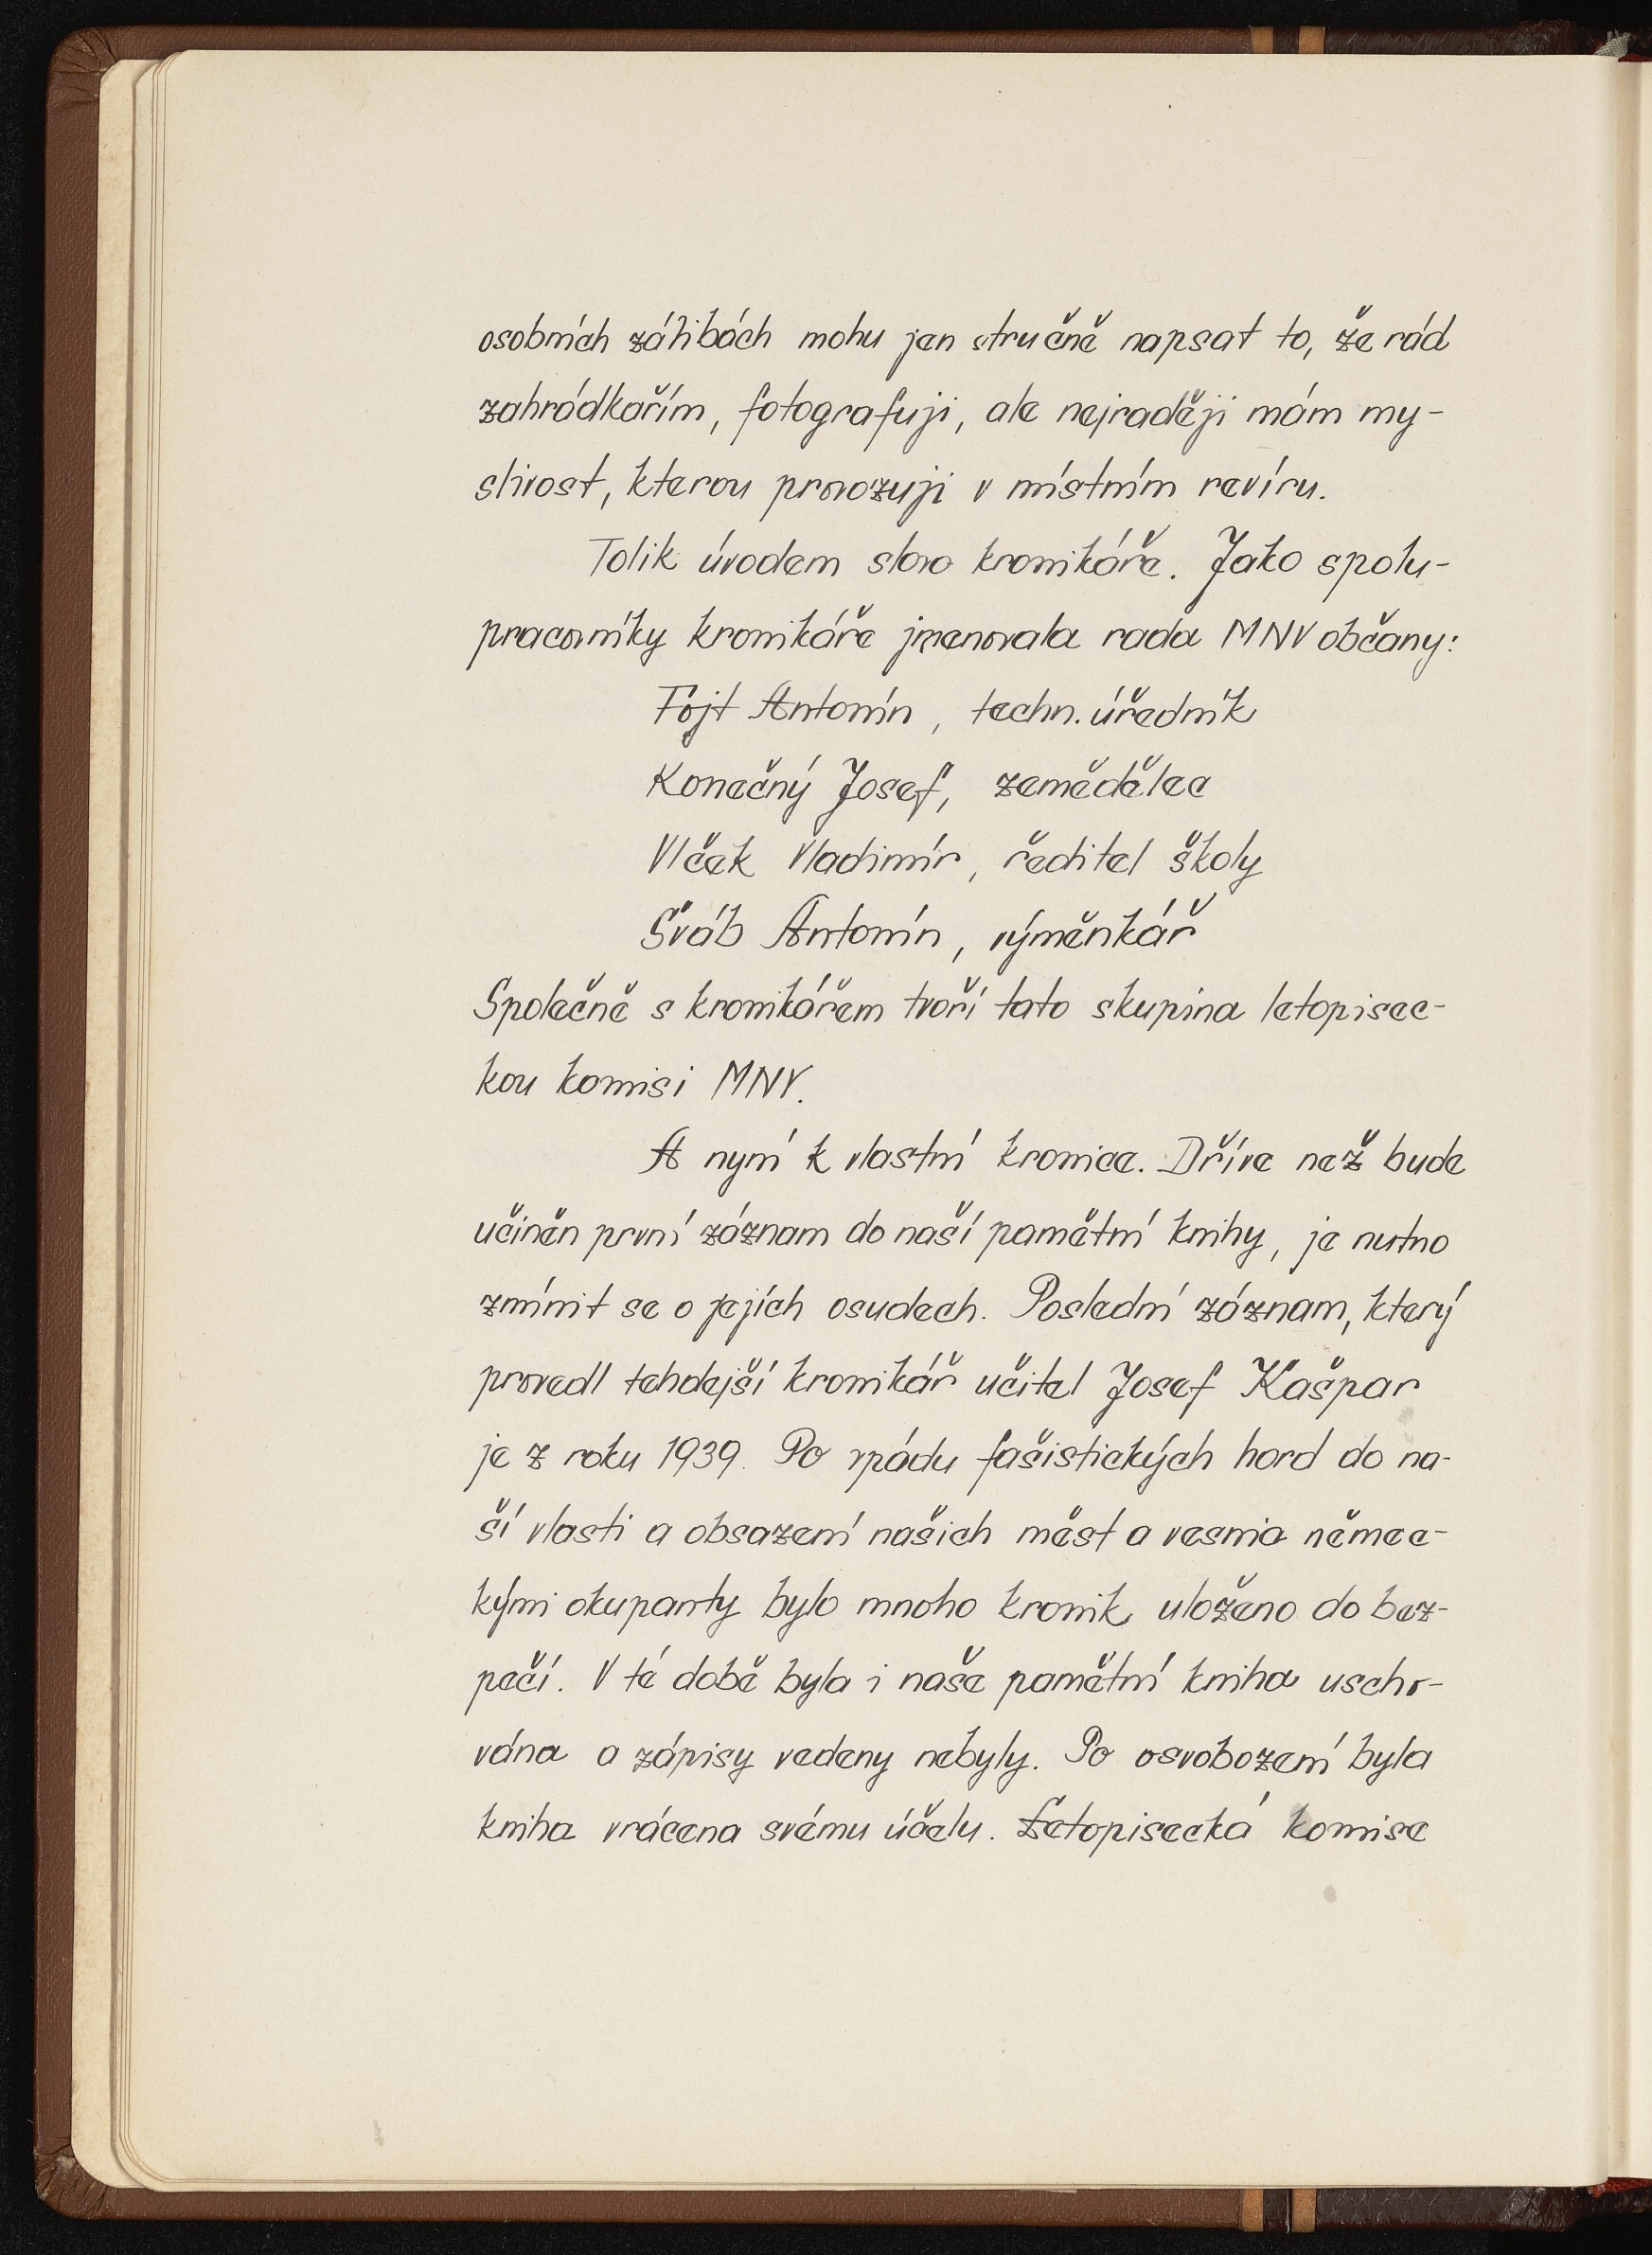 osobních zálibách mohu jen stručně napsat to, že rád
zahrádkařím, fotografuji, ale nejraději mám my-
slivost, kterou provozuji v místním revíru.
Tolik úvodem slovo kronikáře. Jako spolu-
pracovníky kronikáře jmenovala rada MNV občany:
Fojt Antonín, techn. úředník
Konečný Josef, zemědělec
Vlček Vladimír, ředitel školy
Šváb Antonín, výměnkář
Společně s kronikářem tvoří tato skupina letopisec-
kou komisi MNV.
A nyní k vlastní kronice. Dříve než bude
učiněn první záznam do naší pamětní knihy, je nutno
zmínit se o jejích osudech. Poslední záznam, který
provedl tehdejší kronikář učitel Josef Kašpar
je z roku 1939. Po vpádu fašistických hord do na-
ší vlasti a obsazení našich měst a vesnic němec-
kými okupanty bylo mnoho kronik uloženo do bez-
pečí. V té době byla i naše pamětní kniha uscho-
vána a zápisy vedeny nebyly. Po osvobození byla
kniha vrácena svému účelu. Letopisecká komise